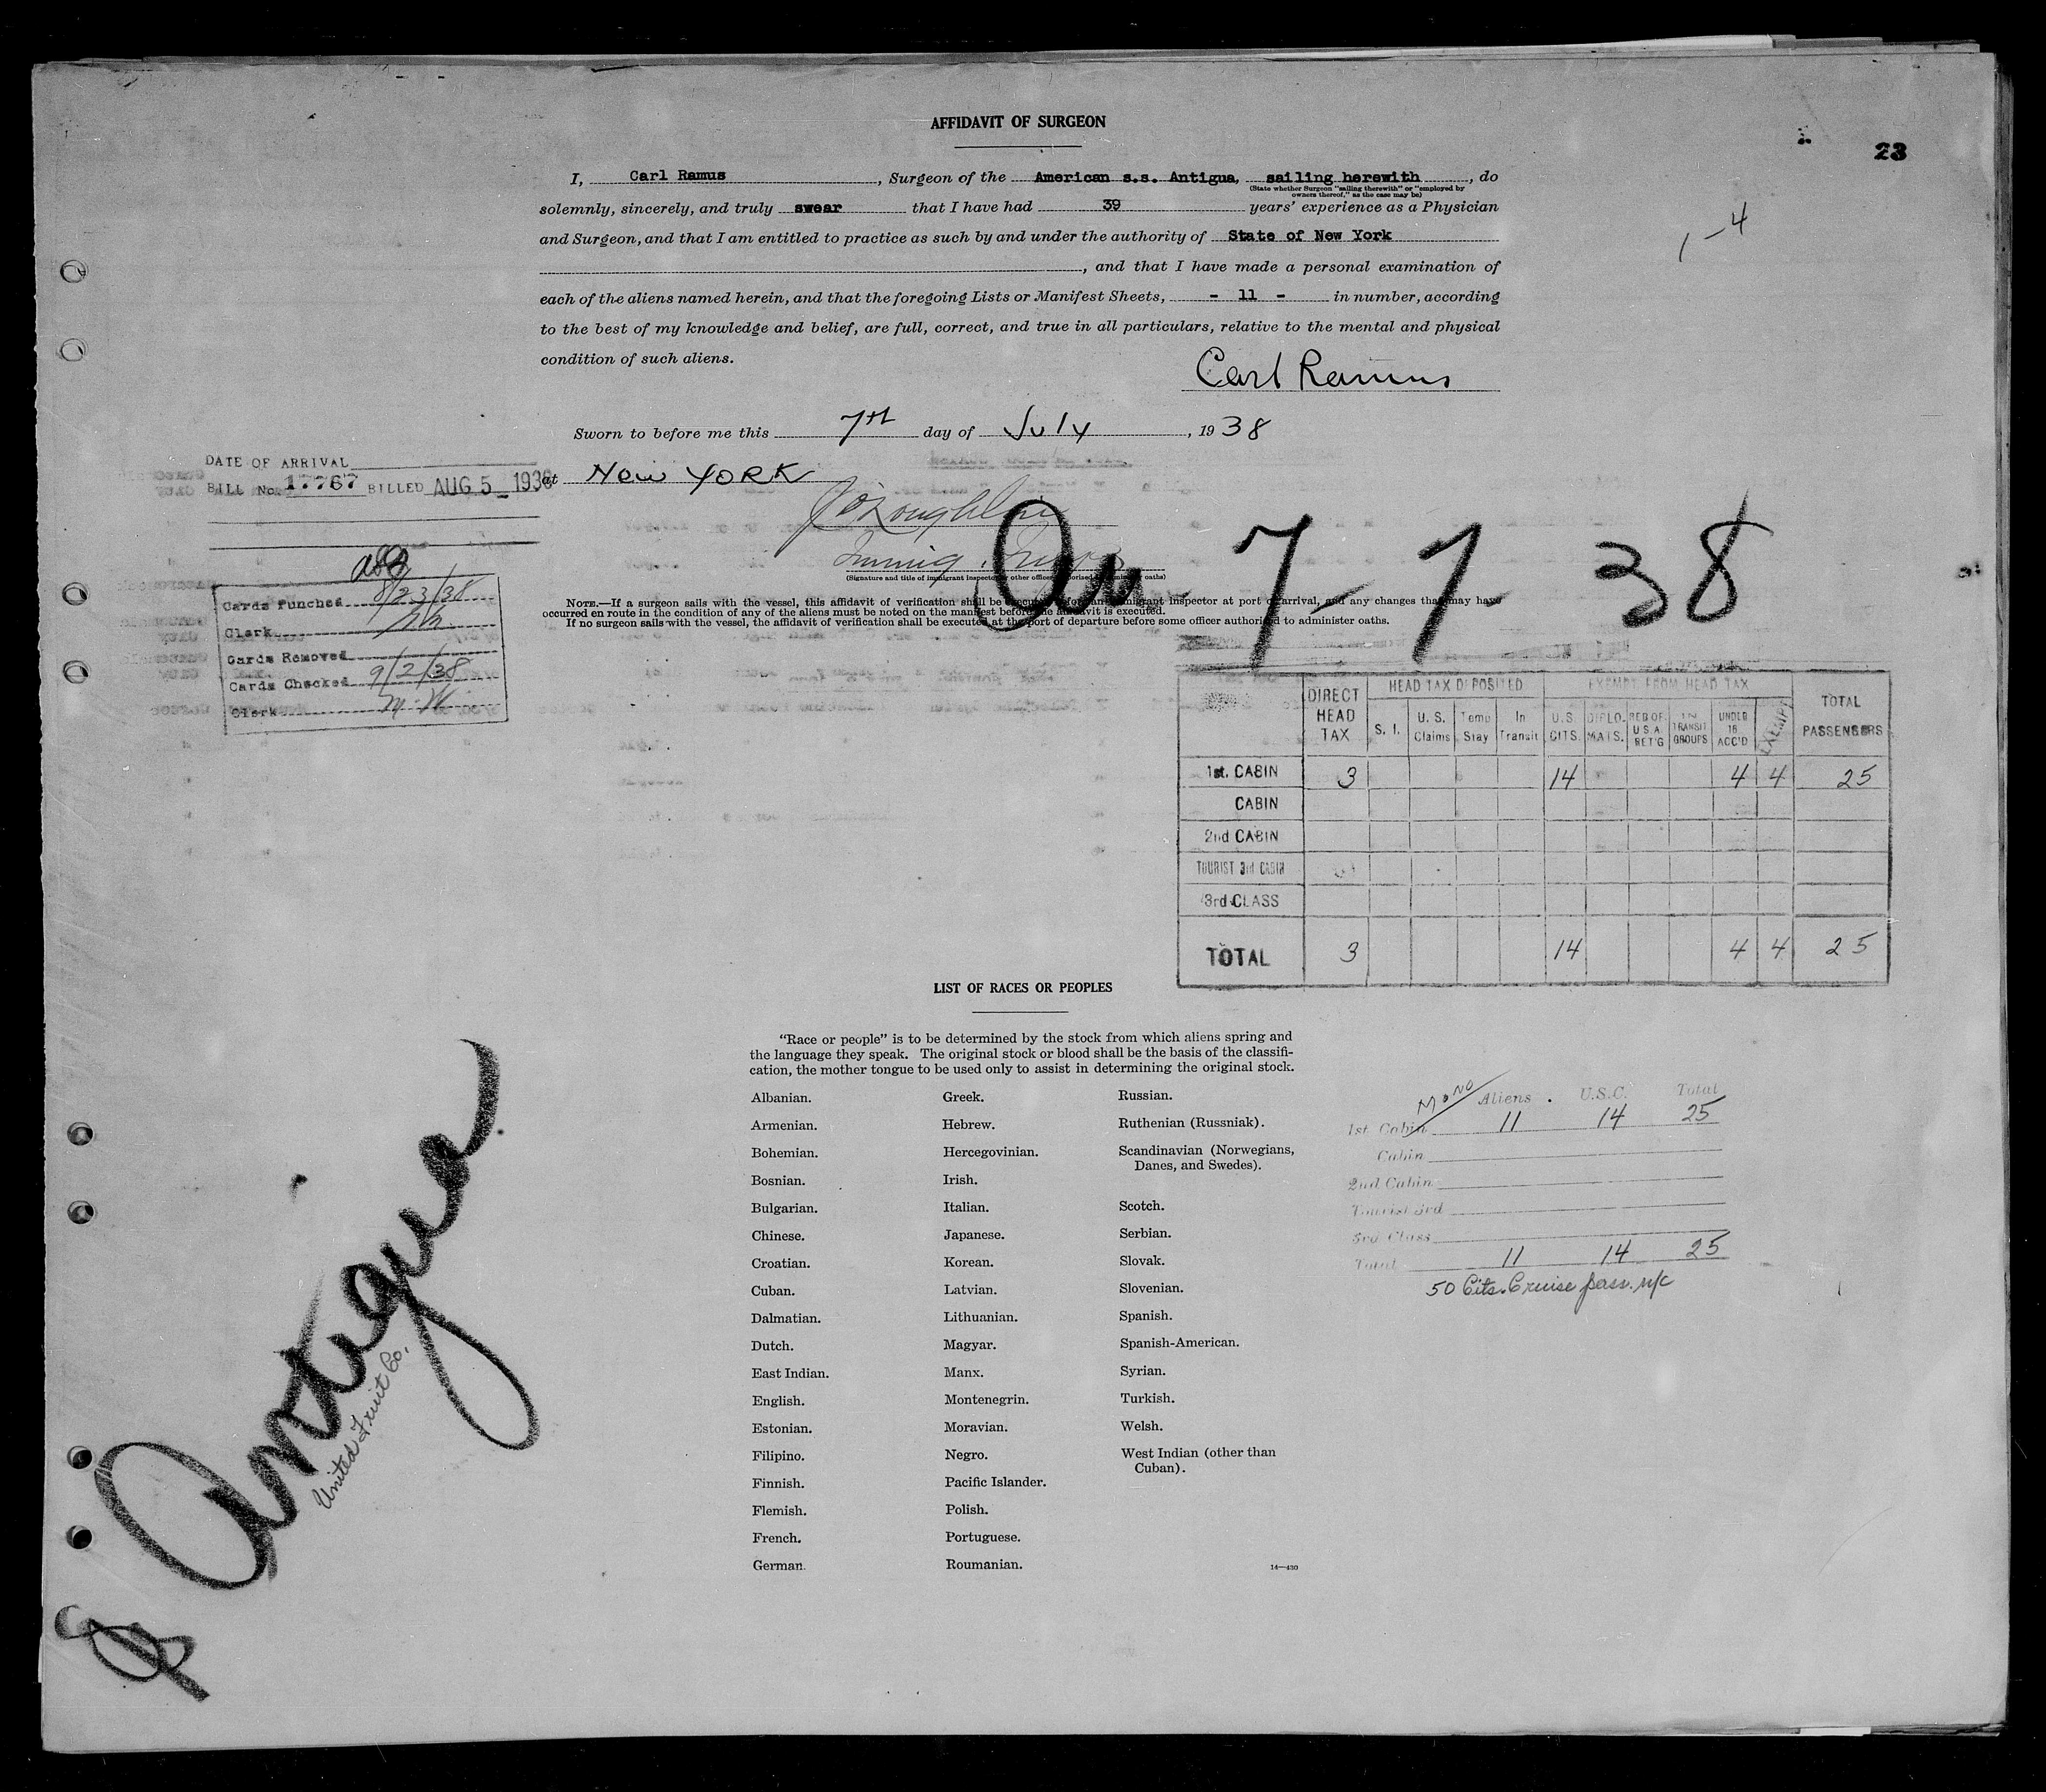 AFFIDAVIT OF SURGEON
23
1-4
I, Carl Ramus, Surgeon of the American s.s. Antigua, sailing herewith, do
(State whether Surgeon "sailing therewith" or "employed by
owners thereof," as the case may be)
solemnly, sincerely, and truly swear that I have had 39 years' experience as a Physician
and Surgeon, and that I am entitled to practice as such by and under the authority of State of New York
, and that I have made a personal examination of
each of the aliens named herein, and that the foregoing Lists or Manifest Sheets, - 11 - in number, according
to the best of my knowledge and belief, are full, correct, and true in all particulars, relative to the mental and physical
condition of such aliens.
Carl Ramus
Sworn to before me this 7th day of July, 1938
at New YORK
J O'Loughlin
Immig. Insp.
(Signature and title of immigrant inspector or other officer authorised to administer oaths)
DATE OF ARRIVAL
BILL No. 17767 BILLED AUG 5 - 1938
Cards Punched 8/23/38
Clerk
Cards Removed
Cards Checked 9/2/38
Clerk M.W.
7-7-38
NOTE.—If a surgeon sails with the vessel, this affidavit of verification shall be executed before an immigrant inspector at port of arrival, and any changes that may have
occurred en route in the condition of any of the aliens must be noted on the manifest before the affidavit is executed.
If no surgeon sails with the vessel, the affidavit of verification shall be executed at the port of departure before some officer authorized to administer oaths.
DIRECT HEAD TAX HEAD TAX DEPOSITED EXEMPT FROM HEAD TAX TOTAL PASSENGERS
S. I. U. S. Claims Temp Stay In Transit U.S. CITS. DIPLOMATS. RES OF U.S.A. RET'G IN TRANSIT GROUPS UNDER 16 ACC'D EXEMPT
1st. CABIN 3 14 4 4 25
CABIN
2nd CABIN
TOURIST 3rd CABIN
3rd CLASS
TOTAL 3 14 4 4 25
LIST OF RACES OR PEOPLES
"Race or people" is to be determined by the stock from which aliens spring and
the language they speak. The original stock or blood shall be the basis of the classifi-
cation, the mother tongue to be used only to assist in determining the original stock.
Albanian.
Armenian.
Bohemian.
Bosnian.
Bulgarian.
Chinese.
Croatian.
Cuban.
Dalmatian.
Dutch.
East Indian.
English.
Estonian.
Filipino.
Finnish.
Flemish.
French.
German.
Greek.
Hebrew.
Hercegovinian.
Irish.
Italian.
Japanese.
Korean.
Latvian.
Lithuanian.
Magyar.
Manx.
Montenegrin.
Moravian.
Negro.
Pacific Islander.
Polish.
Portuguese.
Roumanian.
Russian.
Ruthenian (Russniak).
Scandinavian (Norwegians,
Danes, and Swedes).
Scotch.
Serbian.
Slovak.
Slovenian.
Spanish.
Spanish-American.
Syrian.
Turkish.
Welsh.
West Indian (other than
Cuban).
14—430
Mono Aliens U.S.C. Total
1st Cabin 11 14 25
Cabin
2nd Cabin
Tourist 3rd
3rd Class
Total 11 14 25
50 Cits. Cruise pass. n/c
Antigua
United Fruit Co.